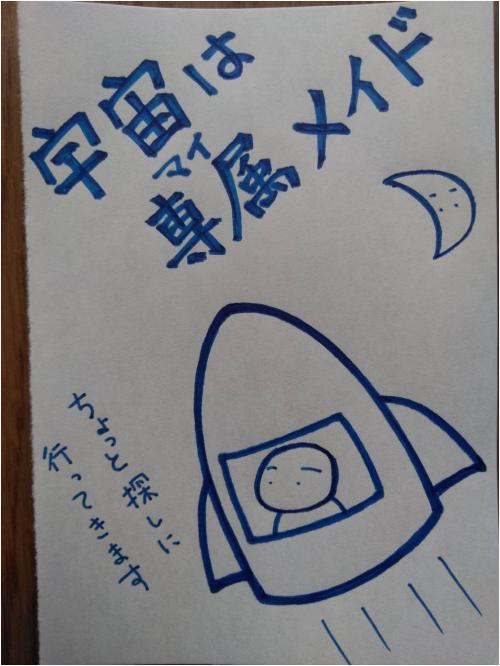 宇宙は
マイ
専属メイド
ちょっと探しに
行ってきます